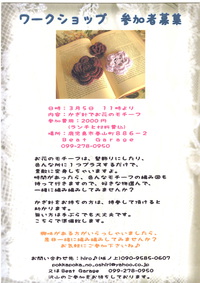 ワークショップ 参加者募集
日時:3月5日 11時より
内容:かぎ針でお花のモチーフ
参加費用:2000円
(ランチと材料費込)
場所:鹿児島市春山町886-2
Best Garage
099-278-0950
お花のモチーフは、髪飾りにしたり、
色んな物に1つプラスするだけで、
素敵に変身しちゃいますよ。
時間があったら、色んなモチーフの編み図も
持って行きますので、好きな物選んで、
一緒に編み編みしてみませんか?
かぎ針をお持ちの方は、持参して頂けると
助かります。
無い方は手ぶらでも大丈夫です。
こちらで準備致します。
興味がある方がいらっしゃいましたら、
是非一緒に編み編みしてみませんか?
お気軽にご参加下さいね♪
お問い合わせ先:hiro♪(はノ上)090-8585-0607
又はBest Garage 099-278-0950
沢山のご参加お待ちしております。